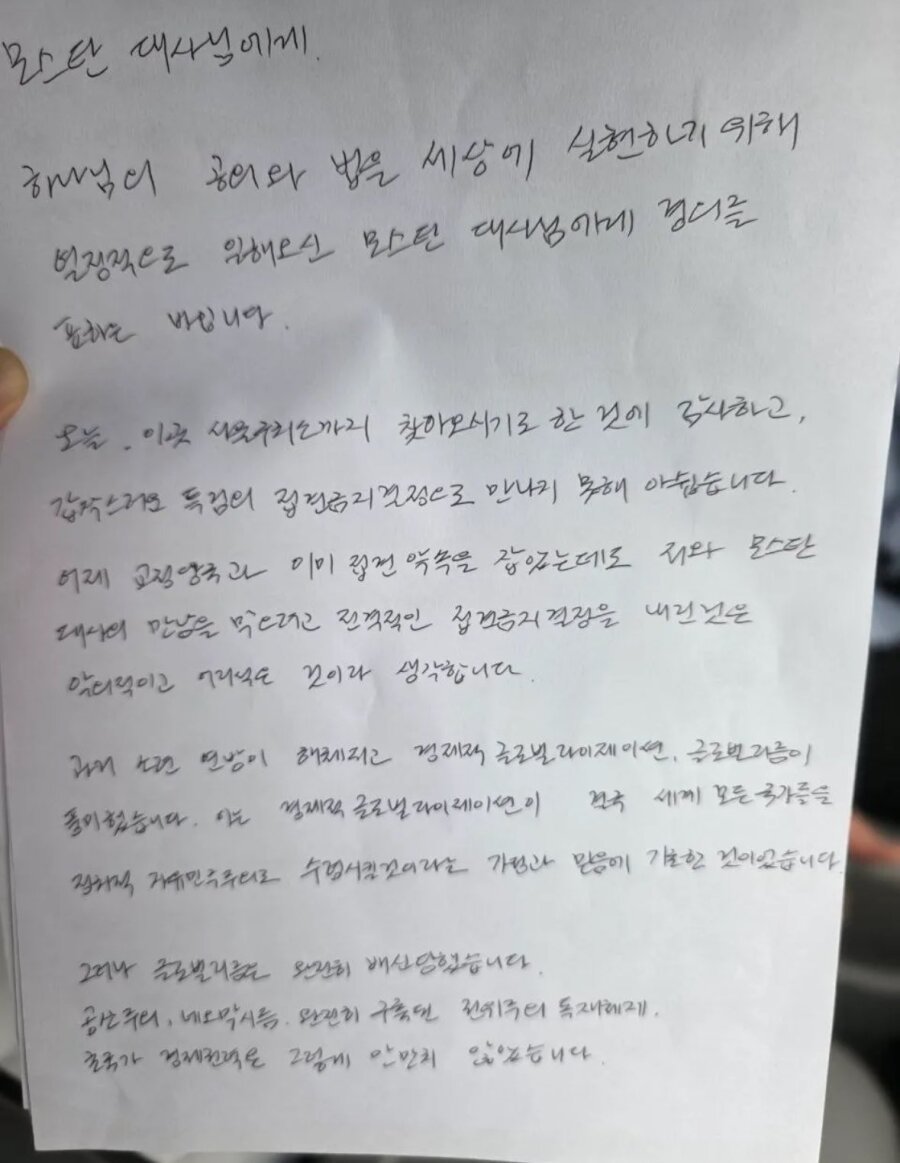 모스탄 대사님에게.
하나님의 공의와 법을 세상에 실현하기 위해
열정적으로 일해오신 모스탄 대사님에게 경의를
표하는 바입니다.
오늘, 이곳 서울구치소까지 찾아오시기로 한 것에 감사하고,
갑작스러운 특검의 접견금지결정으로 만나지 못해 아쉽습니다.
어제 교정당국과 이미 접견 약속을 잡았는데도 저와 모스탄
대사의 만남을 막으려고 전격적인 접견금지결정을 내린것은
악의적이고 어리석은 것이라 생각합니다.
과거 소련 연방이 해체되고 경제적 글로벌라이제이션, 글로벌리즘이
풍미했습니다. 이는 경제적 글로벌라이제이션이 결국 세계 모든 국가들을
정치적 자유민주주의로 수렴시킬것이라는 가정과 믿음에 기초한 것이었습니다
그러나 글로벌리즘은 완전히 배신당했습니다.
공산주의, 네오막시즘. 완전히 구축된 전위주의 독재체제.
초국가 경제권력은 그렇게 만만치 않았습니다.